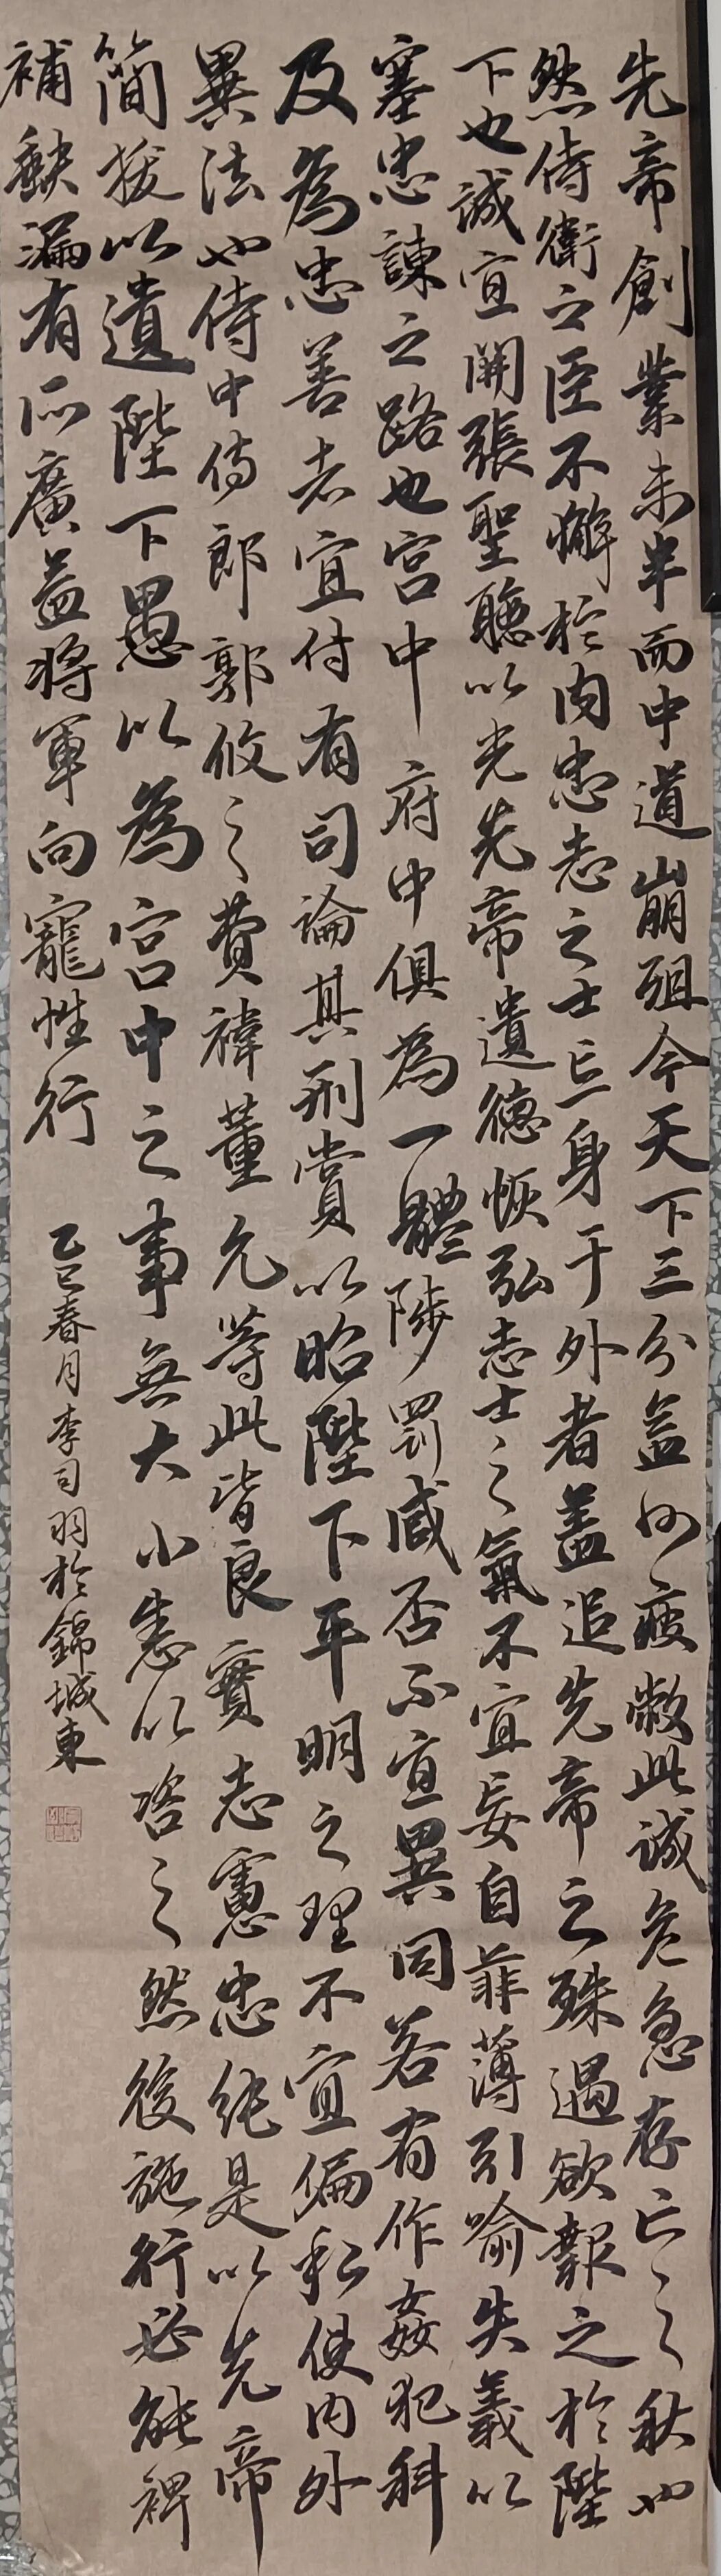 先帝創業未半而中道崩殂今天下三分益州疲敝此誠危急存亡之秋也
然侍衛之臣不懈於内忠志之士忘身于外者蓋追先帝之殊遇欲報之於陛
下也誠宜開張聖聽以光先帝遺德恢弘志士之氣不宜妄自菲薄引喻失義以
塞忠諫之路也宮中府中俱為一體陟罰臧否不宜異同若有作姦犯科
及為忠善者宜付有司論其刑賞以昭陛下平明之理不宜偏私使内外
異法也侍中侍郎郭攸之費禕董允等此皆良實志慮忠純是以先帝
簡拔以遺陛下愚以為宮中之事無大小悉以咨之然後施行必能裨
補缺漏有所廣益將軍向寵性行
乙巳春月李司羽於錦城東